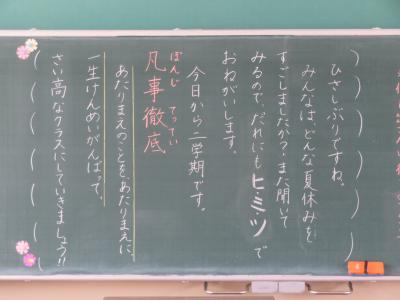 ひさしぶりですね。
みんなは、どんな夏休みを
すごしましたか？また聞いて
みるので、だれにもヒ・ミ・ツで
おねがいします。
今日から二学期です。
ぼんじ てってい
凡事徹底
あたりまえのことを、あたりまえに、
一生けんめいがんばって、
さい高なクラスにしていきましょう!!